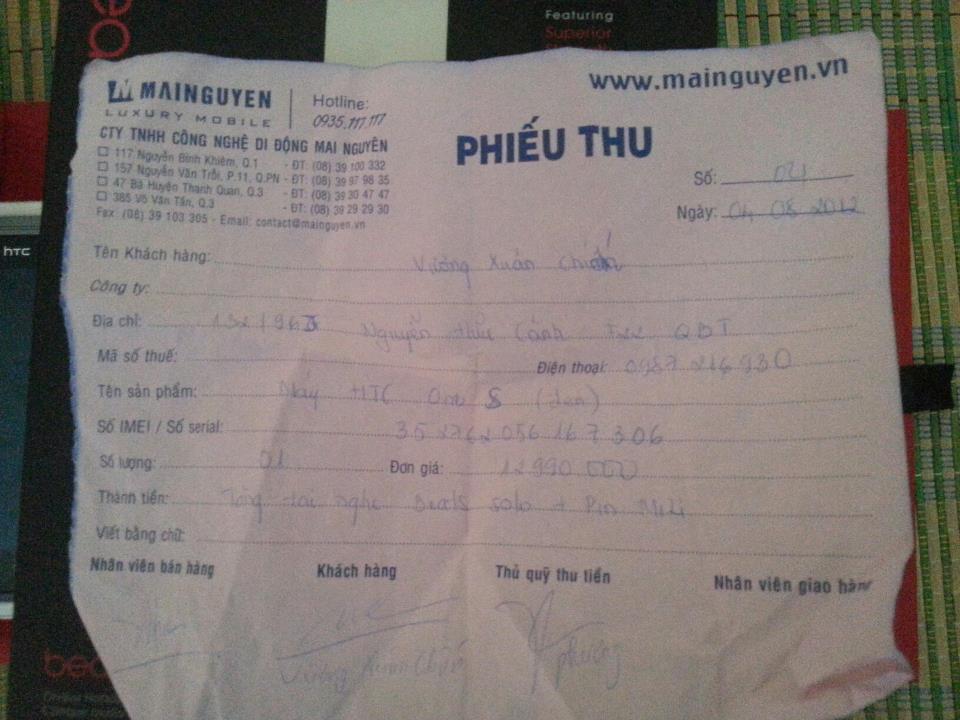 Featuring
Superior
www.mainguyen.vn
MAINGUYEN
LUXURY MOBILE
Hotline:
0935.117.117
CTY TNHH CÔNG NGHỆ DI ĐỘNG MAI NGUYÊN
PHIẾU THU
117 Nguyễn Bỉnh Khiêm, Q.1 - ĐT: (08) 39 100 332
157 Nguyễn Văn Trỗi, P.11, Q.PN - ĐT: (08) 39 97 98 35
47 Bà Huyện Thanh Quan, Q.3 - ĐT: (08) 39 30 47 47
385 Võ Văn Tần, Q.3 - ĐT: (08) 39 29 29 30
Fax: (08) 39 103 305 - Email: contact@mainguyen.vn
Số:
Ngày: 04 08 2012
htc
Tên Khách hàng: Vương Xuân
Công ty:
Địa chỉ: Nguyễn Hữu Cảnh F22 QBT
Mã số thuế: Điện thoại: 0987 216 930
Tên sản phẩm: Máy HTC One S (đen)
Số IMEI / Số serial: 352762056167306
Số lượng: 01 Đơn giá: 12990 000
Thành tiền: Tặng tai nghe Beats solo + Pin Mili
Viết bằng chữ:
Nhân viên bán hàng Khách hàng Thủ quỹ thu tiền Nhân viên giao hàng
Vương Xuân
Phương